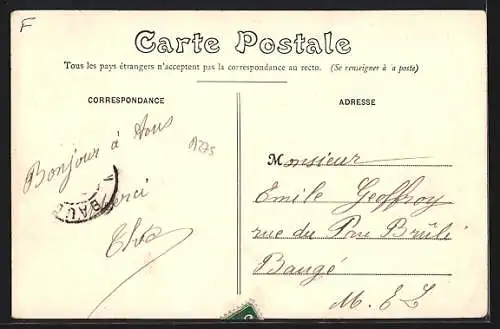 F
Carte Postale
Tous les pays étrangers n'acceptent pas la correspondance au recto. (Se renseigner à a poste)
CORRESPONDANCE
ADRESSE
Bonjour à tous
1275
Merci
BAU
Monsieur
Emile Geoffroy
rue du Pau Brûlé
Baugé
M. & L.